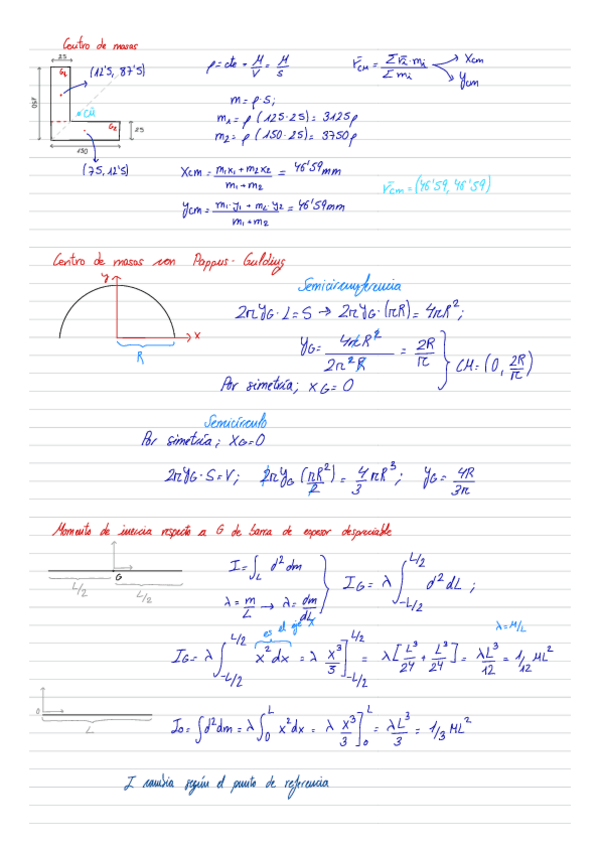 Centro de masas
25
G₁ (12'5, 87'5)
150
CM
G₂
25
150
(75, 12'5)
ρ = cte = M/V = M/S
r̄CM = Σ r̄i · mi / Σ mi → Xcm
Ycm
m = ρ · S;
m₁ = ρ (125 · 25) = 3125ρ
m₂ = ρ (150 · 25) = 3750ρ
Xcm = (m₁x₁ + m₂x₂)/(m₁ + m₂) = 46'59mm
r̄cm = (46'59, 46'59)
Ycm = (m₁ · y₁ + m₂ · y₂)/(m₁ + m₂) = 46'59mm
Centro de masas con Pappus-Guldinus
y
x
R
Semicircunferencia
2πyG · L = S → 2πyG · (πR) = 4πR²;
yG = 4πR²/2π²R = 2R/π
Por simetría; xG = 0
CM = (0, 2R/π)
Semicírculo
Por simetría; xG = 0
2πyG · S = V; 2πyG (πR²/2) = 4/3 πR³; yG = 4R/3π
Momento de inercia respecto a G de barra de espesor despreciable
G
L/2
L/2
I = ∫L d² dm
λ = m/L → λ = dm/dL
IG = λ ∫-L/2^L/2 d² dL ;
es el eje x
λ = M/L
IG = λ ∫-L/2^L/2 x² dx = λ x³/3 ]-L/2^L/2 = λ [L³/24 + L³/24] = λL³/12 = 1/12 ML²
0
L
I₀ = ∫d²dm = λ ∫0^L x²dx = λ x³/3 ]0^L = λL³/3 = 1/3 ML²
I cambia según el punto de referencia